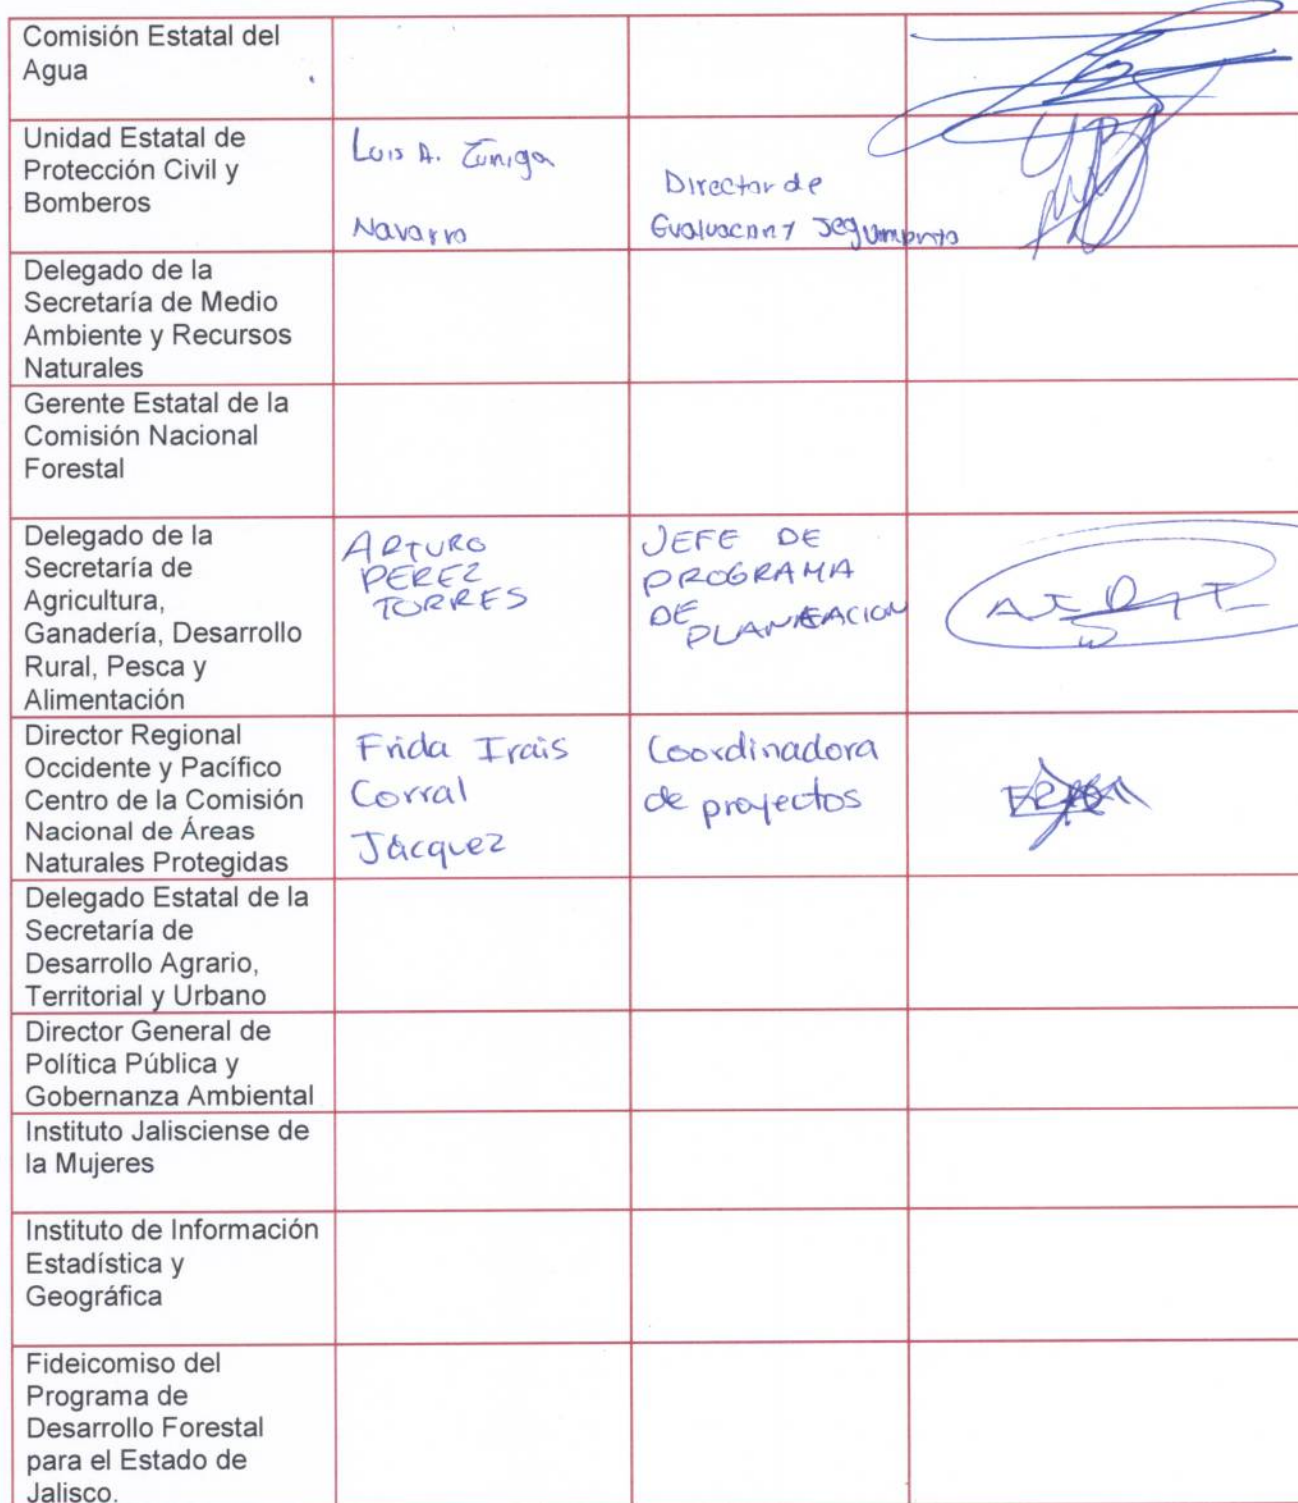 Comisión Estatal del
Agua
Unidad Estatal de
Protección Civil y
Bomberos
Luis A. Zuniga
Navarro
Director de
Evaluacion y Segumiento
Delegado de la
Secretaría de Medio
Ambiente y Recursos
Naturales
Gerente Estatal de la
Comisión Nacional
Forestal
Delegado de la
Secretaría de
Agricultura,
Ganadería, Desarrollo
Rural, Pesca y
Alimentación
ARTURO
PEREZ
TORRES
JEFE DE
PROGRAMA
DE
PLANEACION
Director Regional
Occidente y Pacífico
Centro de la Comisión
Nacional de Áreas
Naturales Protegidas
Frida Irais
Corral
Jácquez
Coordinadora
de proyectos
Delegado Estatal de la
Secretaría de
Desarrollo Agrario,
Territorial y Urbano
Director General de
Política Pública y
Gobernanza Ambiental
Instituto Jalisciense de
la Mujeres
Instituto de Información
Estadística y
Geográfica
Fideicomiso del
Programa de
Desarrollo Forestal
para el Estado de
Jalisco.